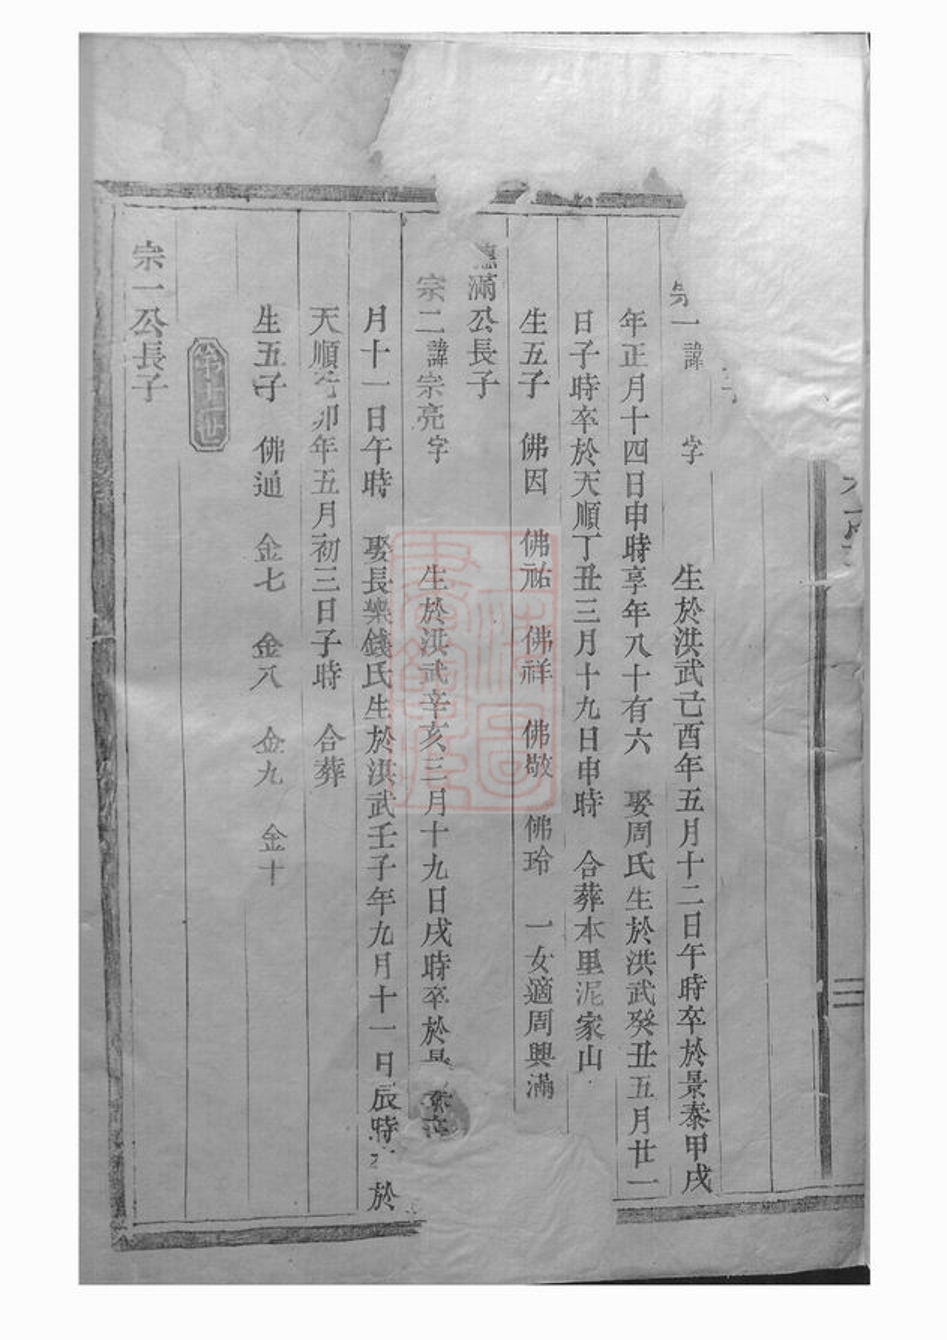 子
宗一諱 字 生於洪武己酉年五月十二日午時卒於景泰甲戌
年正月十四日申時享年八十有六 娶周氏生於洪武癸丑五月廿一
日子時卒於天順丁丑三月十九日申時 合葬本里泥家山
生五子 佛因 佛祐 佛祥 佛敬 佛玲 一女適周興滿
德滿公長子
宗二諱宗亮字 生於洪武辛亥三月十九日戌時卒於景泰
月十一日午時 娶長樂錢氏生於洪武壬子年九月十一日辰時卒於
天順 卯年五月初三日子時 合葬
生五子 佛通 金七 金八 金九 金十
第十世
宗一公長子